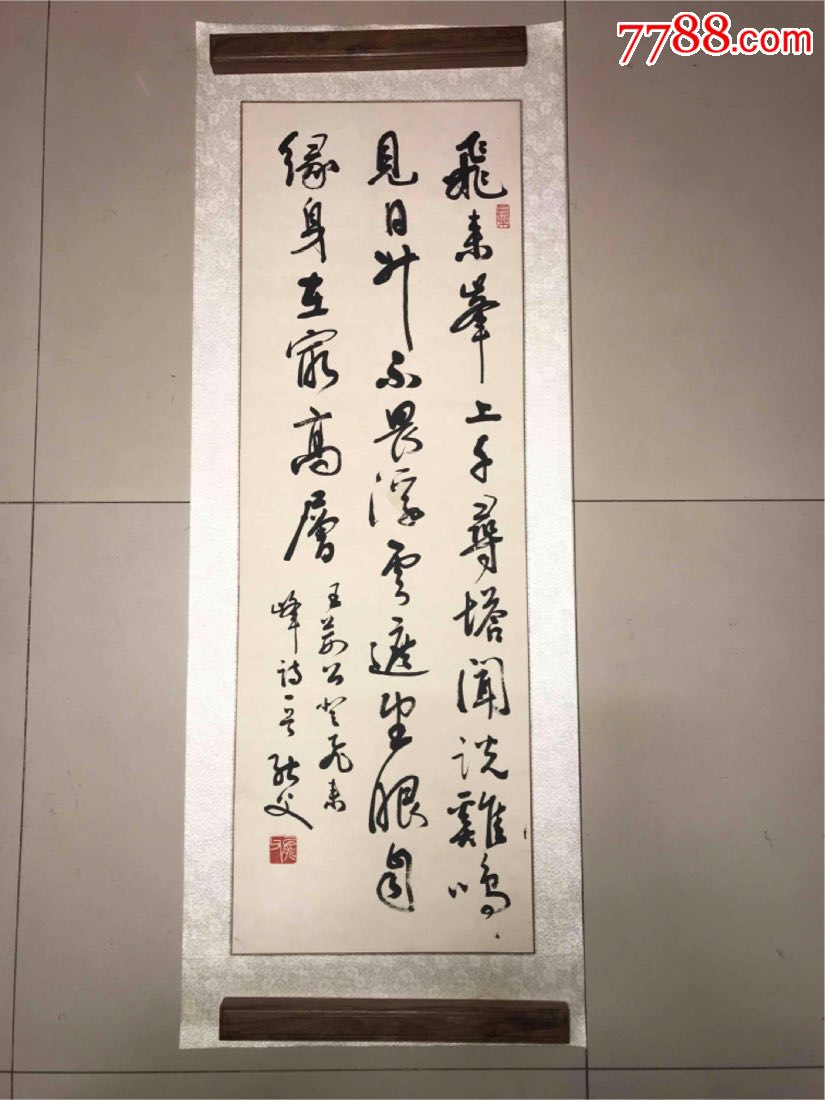 7788.com
飛来峯上千尋塔聞説雞鳴
見日升不畏浮雲遮望眼自
緣身在最高層
王荊公登飛来
峰詩一首 父